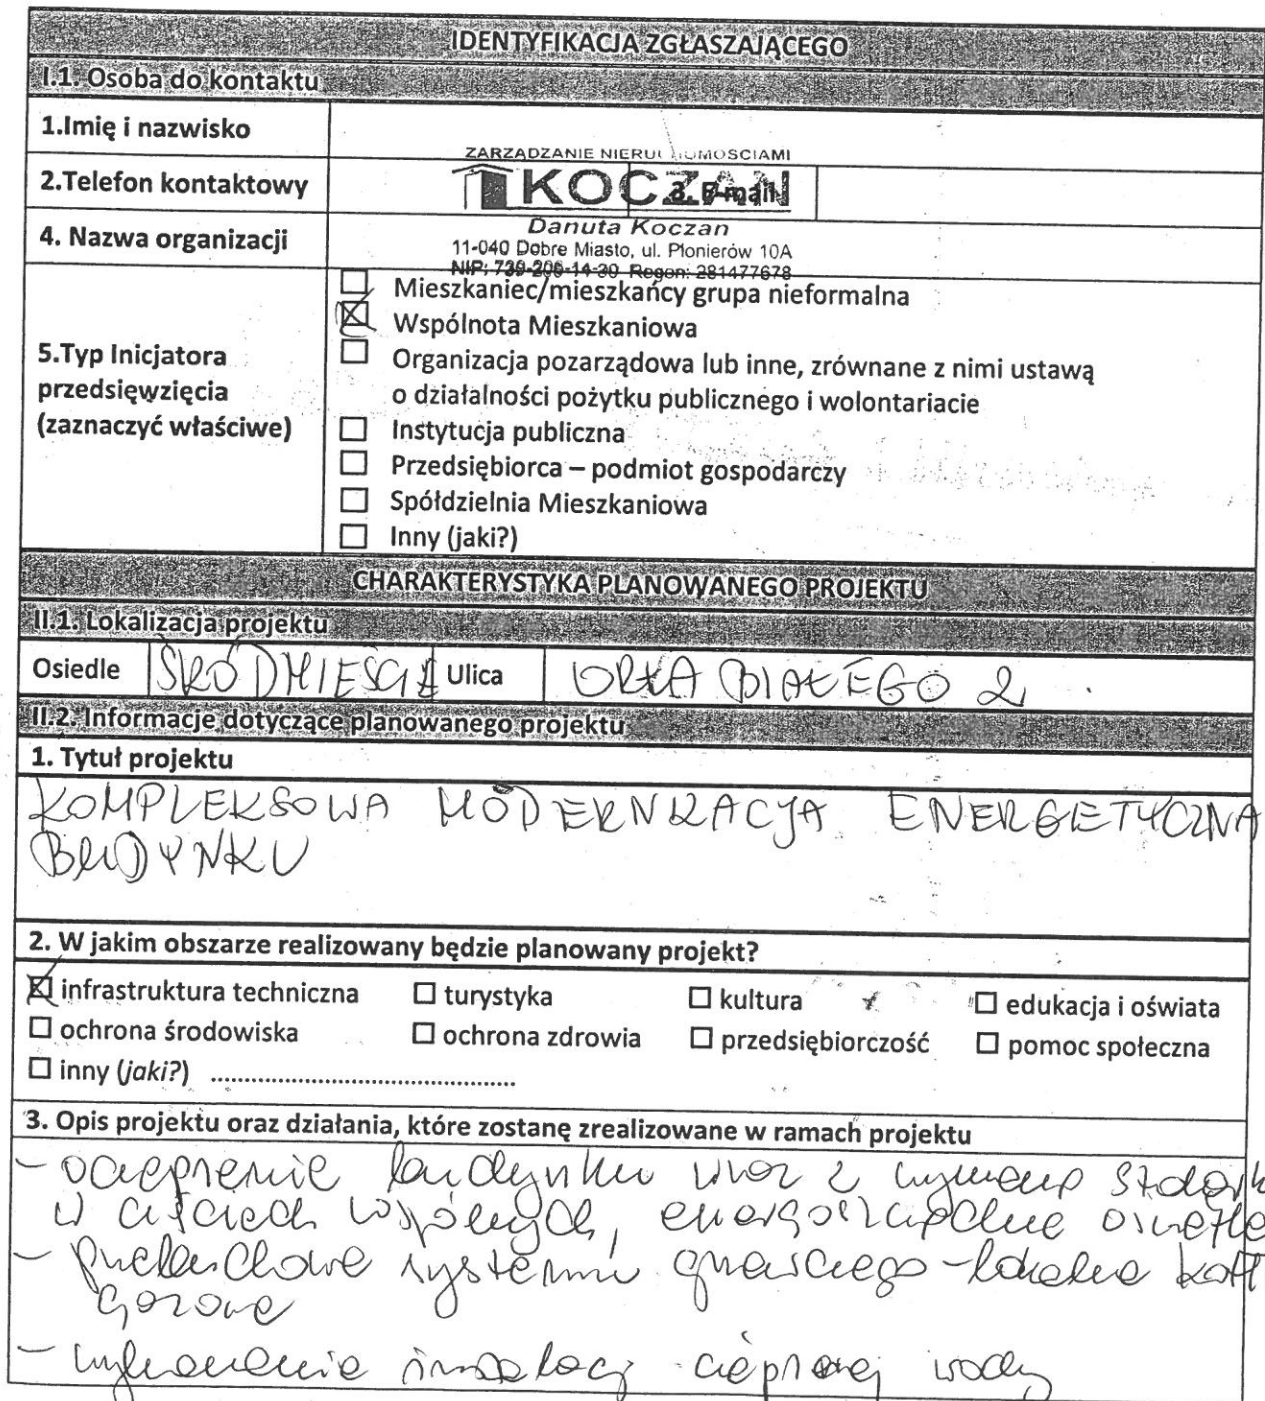 IDENTYFIKACJA ZGŁASZAJĄCEGO
I.1. Osoba do kontaktu
1.Imię i nazwisko
ZARZĄDZANIE NIERUCHOMOSCIAMI
2.Telefon kontaktowy
KOCZAN
3. E-mail
Danuta Koczan
4. Nazwa organizacji
11-040 Dobre Miasto, ul. Pionierów 10A
NIP: 739-200-14-30 Regon: 281477678
5.Typ Inicjatora
przedsięwzięcia
(zaznaczyć właściwe)
☐ Mieszkaniec/mieszkańcy grupa nieformalna
☒ Wspólnota Mieszkaniowa
☐ Organizacja pozarządowa lub inne, zrównane z nimi ustawą
o działalności pożytku publicznego i wolontariacie
☐ Instytucja publiczna
☐ Przedsiębiorca – podmiot gospodarczy
☐ Spółdzielnia Mieszkaniowa
☐ Inny (jaki?)
CHARAKTERYSTYKA PLANOWANEGO PROJEKTU
II.1. Lokalizacja projektu
Osiedle ŚRÓDMIEŚCIE Ulica ORŁA BIAŁEGO 2
II.2. Informacje dotyczące planowanego projektu
1. Tytuł projektu
KOMPLEKSOWA MODERNIZACJA ENERGETYCZNA
BUDYNKU
2. W jakim obszarze realizowany będzie planowany projekt?
☒ infrastruktura techniczna ☐ turystyka ☐ kultura ☐ edukacja i oświata
☐ ochrona środowiska ☐ ochrona zdrowia ☐ przedsiębiorczość ☐ pomoc społeczna
☐ inny (jaki?) ............................................
3. Opis projektu oraz działania, które zostanę zrealizowane w ramach projektu
- ocieplenie budynku wraz z wymianą stolark
w częściach wspólnych, energooszczędne oświetle
- przebudowa systemu grzewczego - lokalne kotł
gazowe
- wykonanie instalacji ciepłej wody